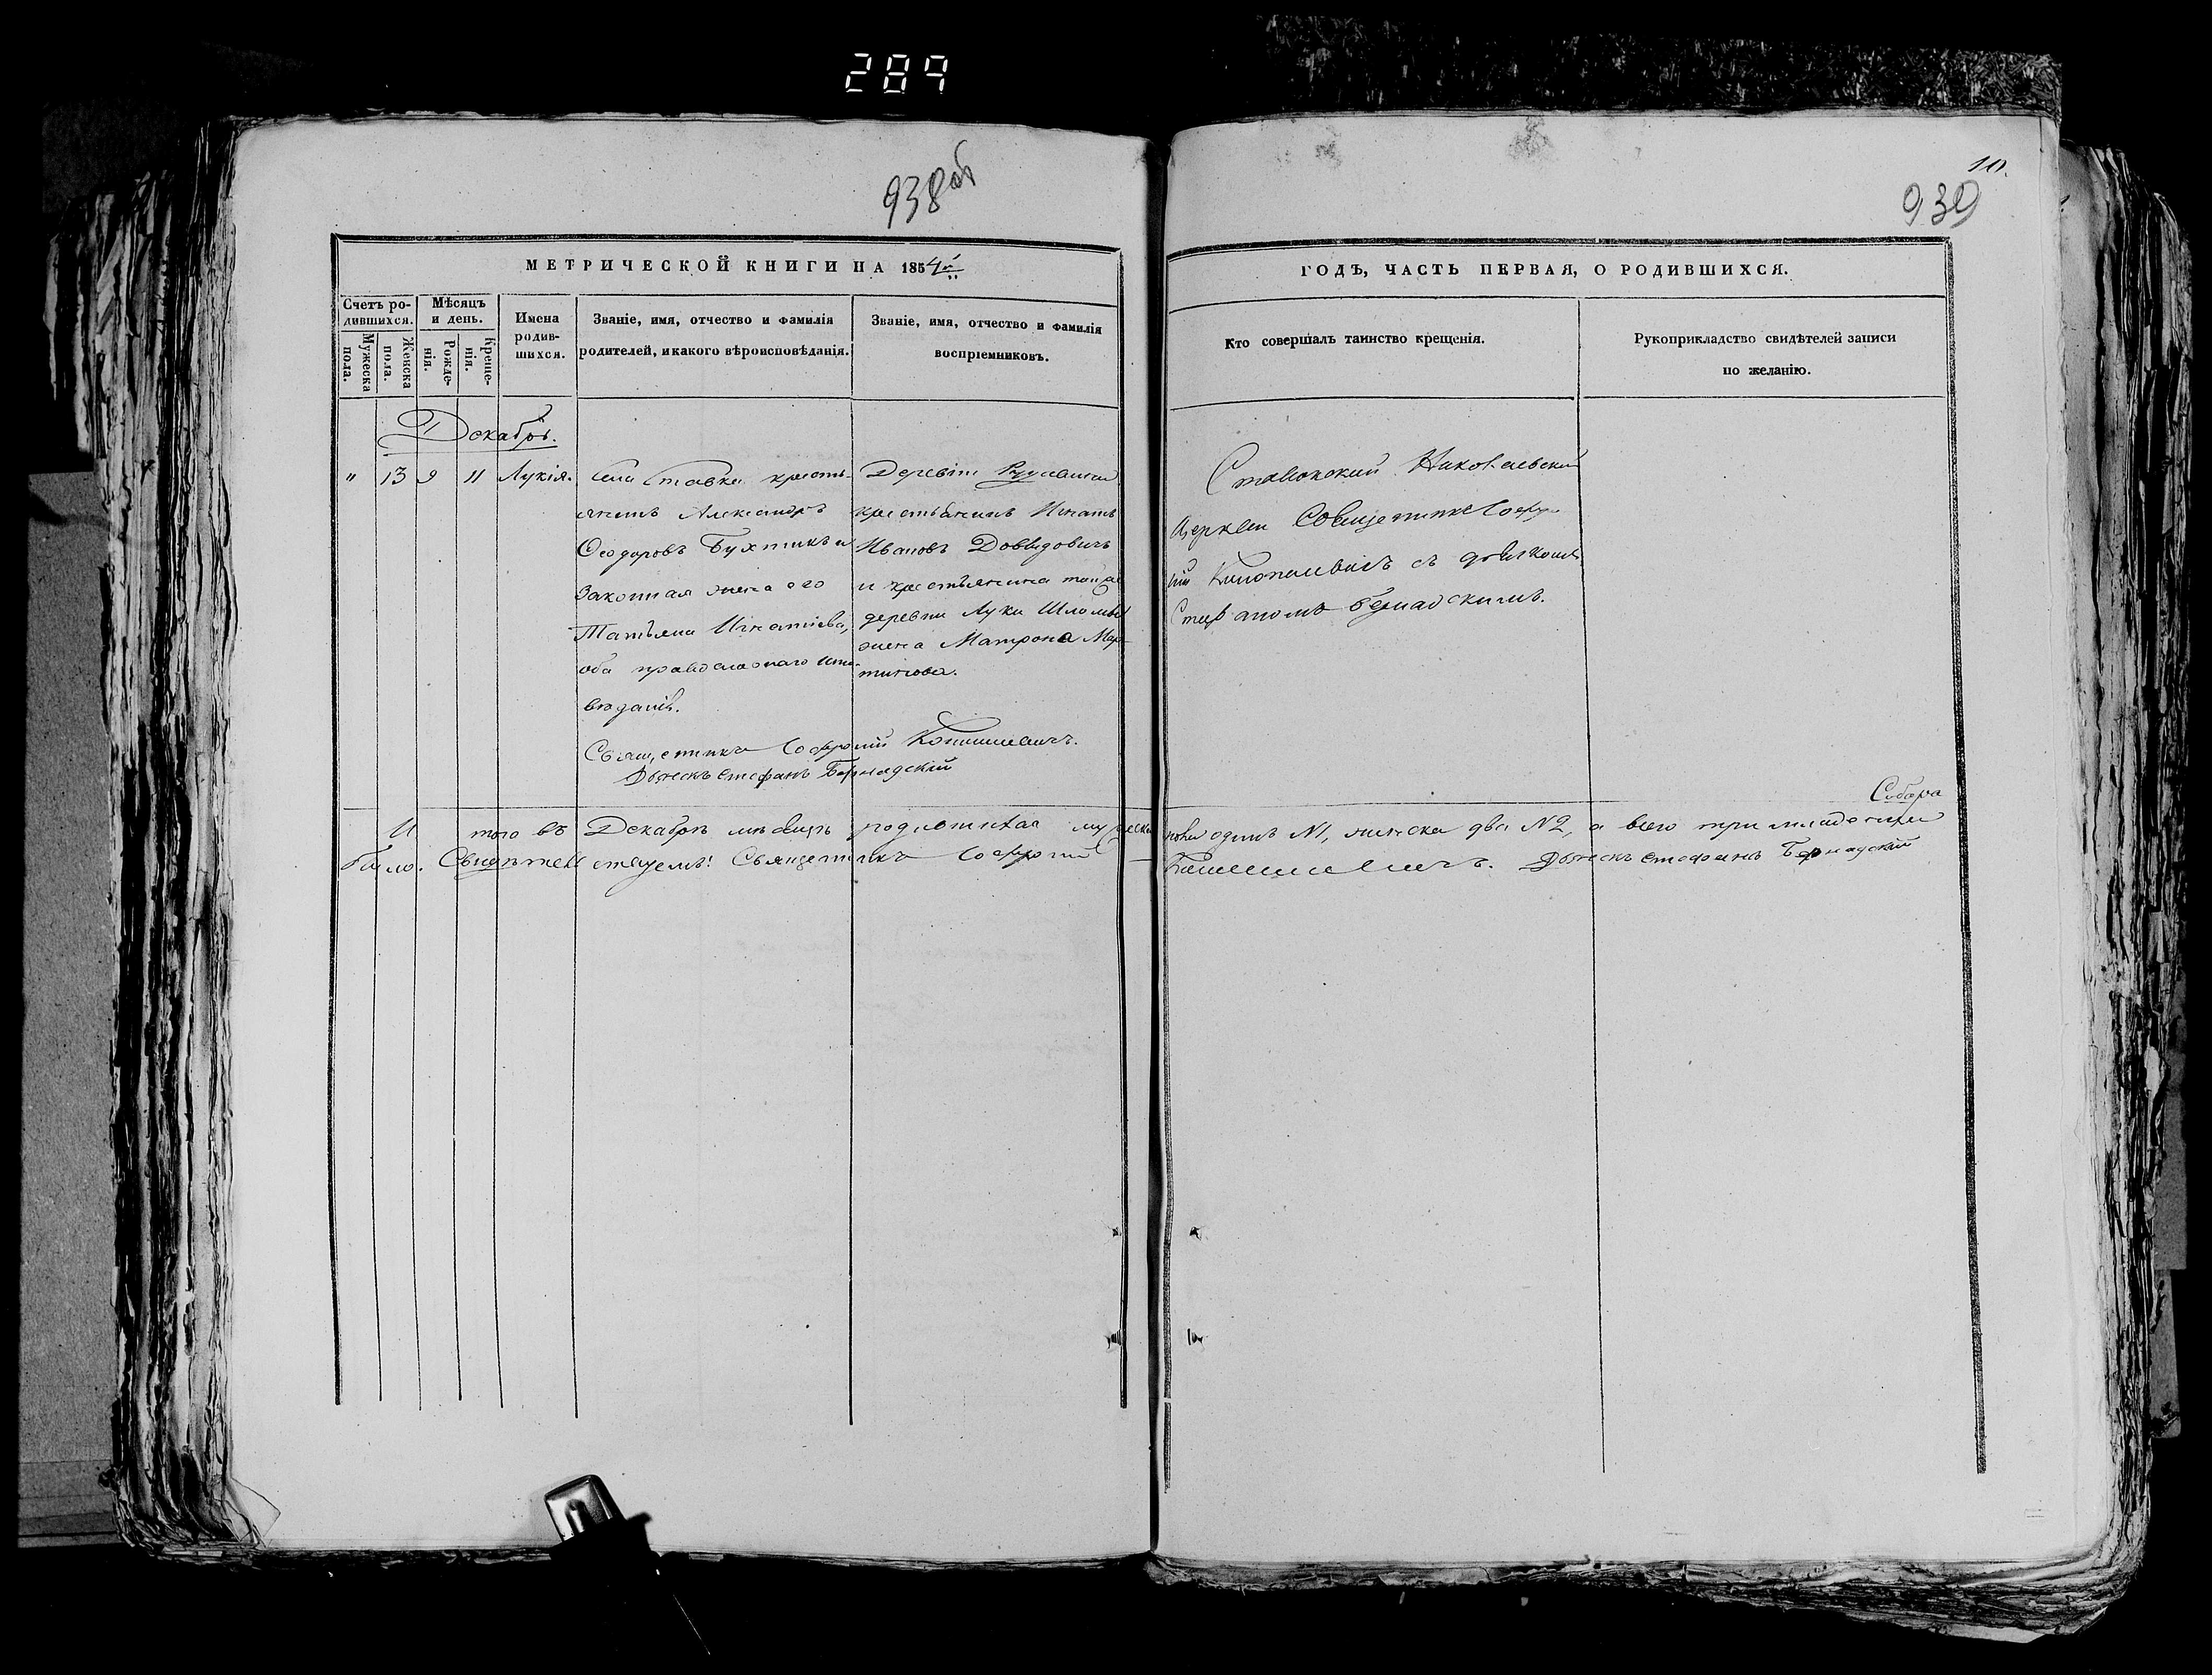 289
938об
10.
939
МЕТРИЧЕСКОЙ КНИГИ НА 1854й
ГОДЪ, ЧАСТЬ ПЕРВАЯ, О РОДИВШИХСЯ.
Счетъ ро-
дившихся.
Мужеска
пола.
Женска
пола.
Мѣсяцъ
и день.
Рожде-
нія.
Креще-
нія.
Имена
родив-
шихся.
Званіе, имя, отчество и фамилія
родителей, и какого вѣроисповѣданія.
Званіе, имя, отчество и фамилія
воспріемниковъ.
Кто совершалъ таинство крещенія.
Рукоприкладство свидѣтелей записи
по желанію.
Декабрь.
" 13 9 11 Лукія.
Села Ставка кресть-
янинъ Александръ
Ѳеодоровъ Бухтикъ и
законная жена его
Татьяна Игнатіева,
оба православнаго испо-
вѣданія.
Деревни
крестьянинъ Игнатъ
Ивановъ Давидовичъ
и крестьянина той же
деревни Луки
жена Матрона Мар-
тинова.
Ставокской Николаевской
церкви Священникъ Софро-
ній съ дьячкомъ
Стефаномъ Бернадскимъ.
Священникъ Софроній
Дьячекъ Стефанъ Бернадскій
И того въ Декабрѣ мѣсяцѣ родившихся мужеска пола одинъ №1, женска два №2, а всего три младенца
было. Свидѣтельствуемъ! Священникъ Софроній
Дьячекъ Стефанъ Бернадскій